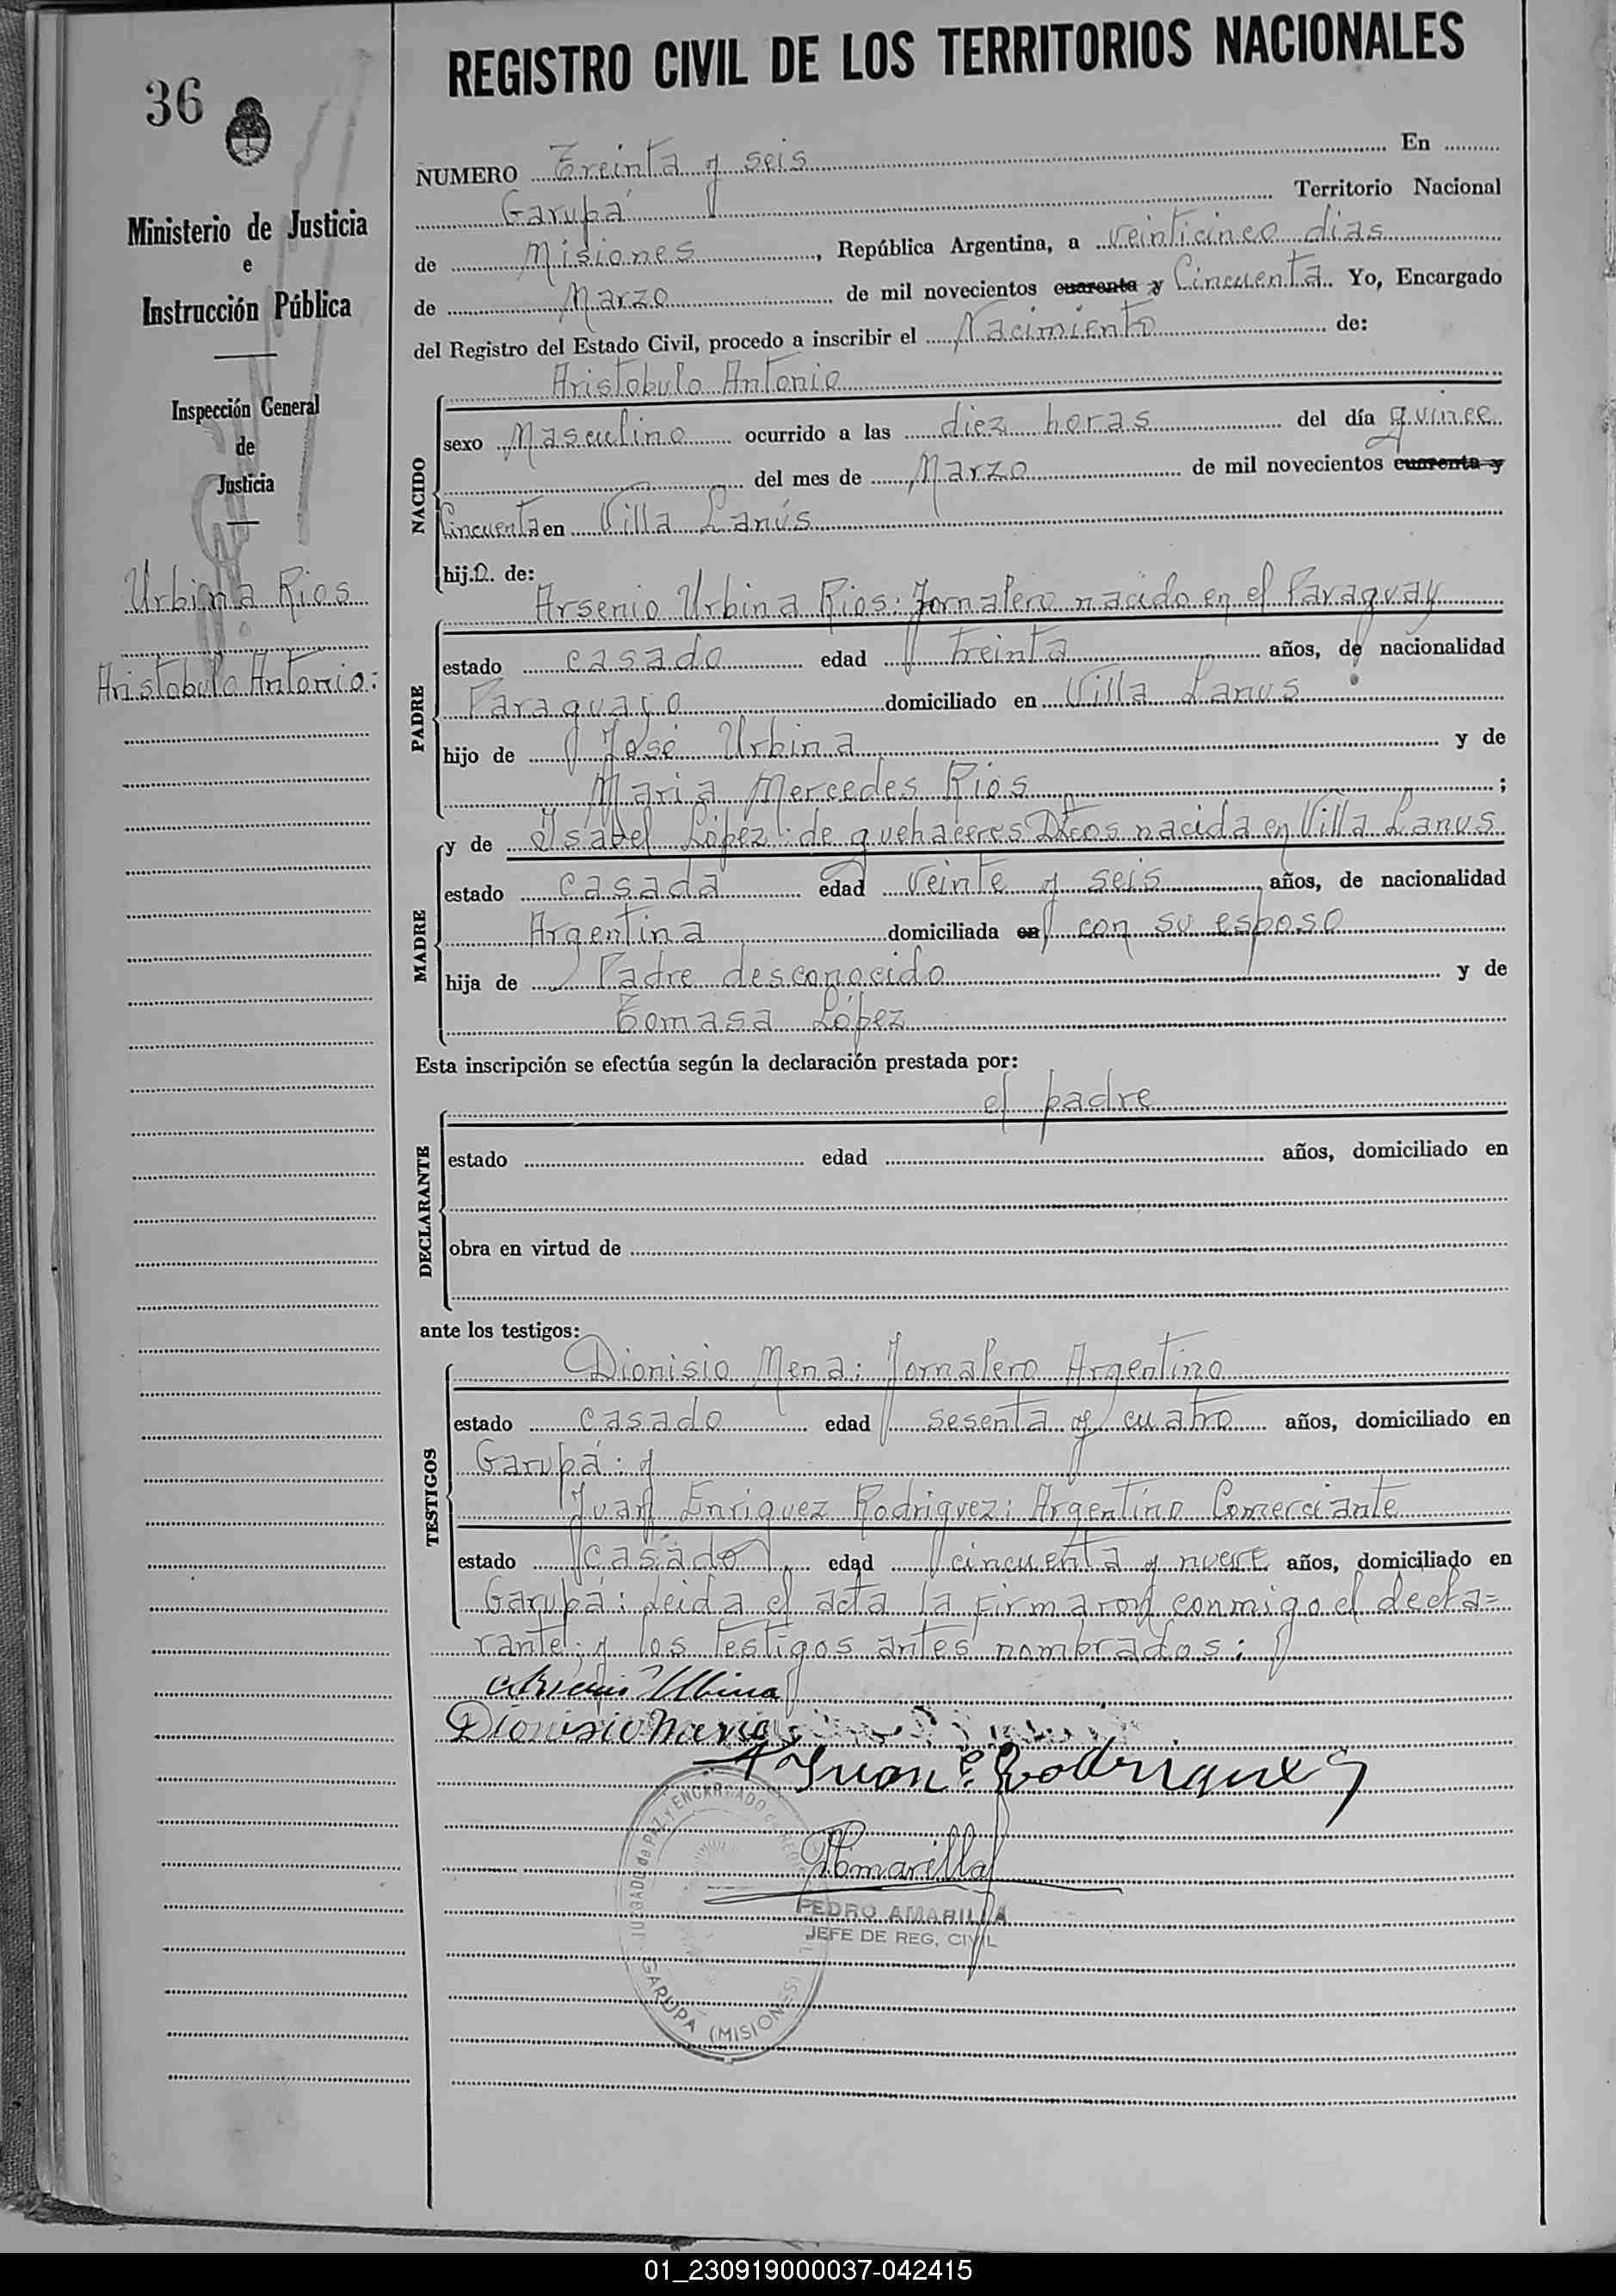 36
Ministerio de Justicia
e
Instrucción Pública
Inspección General
de
Justicia
Urbina Rios
Aristobulo Antonio:
REGISTRO CIVIL DE LOS TERRITORIOS NACIONALES
NUMERO Treinta y seis En
Garupá Territorio Nacional
de Misiones, República Argentina, a veinticinco dias
de Marzo de mil novecientos cuarenta y Cincuenta. Yo, Encargado
del Registro del Estado Civil, procedo a inscribir el Nacimiento de:
NACIDO
Aristobulo Antonio
sexo Masculino ocurrido a las diez horas del día quince
del mes de Marzo de mil novecientos cuarenta y
Cincuenta en Villa Lanús
hijo. de:
PADRE
Arsenio Urbina Rios: Jornalero nacido en el Paraguay
estado casado edad treinta años, de nacionalidad
Paraguayo domiciliado en Villa Lanus
hijo de José Urbina y de
Maria Mercedes Rios ;
MADRE
y de Isabel López: de quehaceres Dtcos nacida en Villa Lanus
estado casada edad veinte y seis años, de nacionalidad
Argentina domiciliada en con su esposo
hija de Padre desconocido y de
Tomasa López
Esta inscripción se efectúa según la declaración prestada por:
DECLARANTE
el padre
estado edad años, domiciliado en
obra en virtud de
ante los testigos:
TESTIGOS
Dionisio Mena: Jornalero Argentino
estado casado edad sesenta y cuatro años, domiciliado en
Garupá: y
Juan Enriquez Rodriguez: Argentino Comerciante
estado casado edad cincuenta y nueve años, domiciliado en
Garupá: leida el acta la firmaron conmigo el decla=
rante: y los testigos antes nombrados:
Arsenio Urbina
Dionisio Mena
Juan E. Rodriguez
PAmarilla
PEDRO AMARILLA
JEFE DE REG. CIVIL
JUZGADO de PAZ y ENCARGADO
GARUPA (MISIONES)
01_230919000037-042415